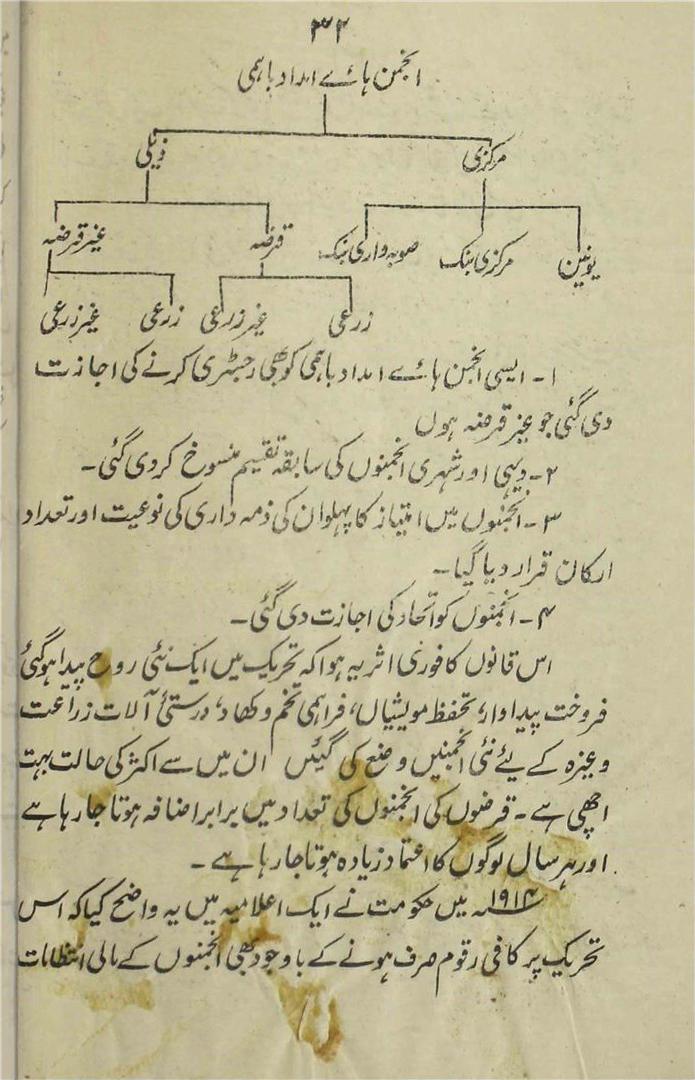 ۳۲
انجمن ہائے امداد باہمی
مرکزی ذیلی
یونین مرکزی بنک صوبہ واری بنک قرضہ غیر قرضہ
زرعی غیر زرعی زرعی غیر زرعی
۱۔ ایسی انجمن ہائے امداد باہمی کو بھی رجسٹری کرنے کی اجازت
دی گئی جو غیر قرضہ ہوں
۲۔ دیہی اور شہری انجمنوں کی سابقہ تقسیم منسوخ کر دی گئی۔
۳۔ انجمنوں میں امتیاز کا پہلو ان کی ذمہ داری کی نوعیت اور تعداد
ارکان قرار دیا گیا۔
۴۔ انجمنوں کو اتحاد کی اجازت دی گئی۔
اس قانون کا فوری اثر یہ ہوا کہ تحریک میں ایک نئی روح پیدا ہو گئی
فروخت پیداوار، تحفظ مویشیاں، فراہمی تخم و کھاد، درستئ آلات زراعت
وغیرہ کے لیئے نئی انجمنیں وضع کی گیئں ان میں سے اکثر کی حالت بہت
اچھی ہے۔ قرضوں کی انجمنوں کی تعداد میں برابر اضافہ ہوتا جا رہا ہے
اور ہر سال لوگوں کا اعتماد زیادہ ہوتا جا رہا ہے۔
۱۹۱۴ء میں حکومت نے ایک اعلامیہ میں یہ واضح کیا کہ اس
تحریک پر کافی رقوم صرف ہونے کے باوجود بھی انجمنوں کے مالی انتظامات